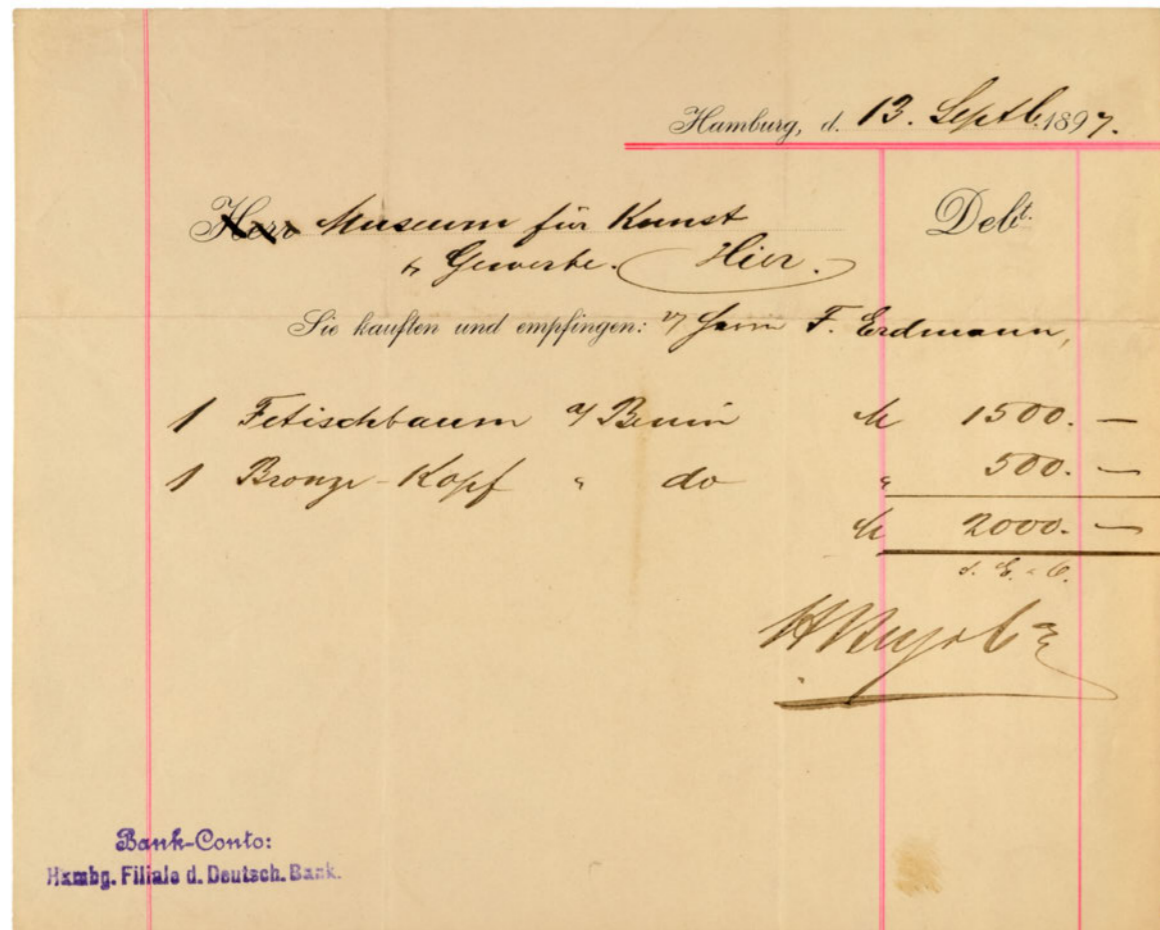 Hamburg, d. 13. Septb. 1897.
Herr Museum für Kunst Debt.
& Gewerbe. Hier.
Sie kauften und empfingen: v/ Herrn F. Erdmann,
1 Fetischbaum a/ Benin M 1500. —
1 Bronze-Kopf " do " 500. —
M 2000. —
s. E. & O.
Bank-Conto:
Hambg. Filiale d. Deutsch. Bank.